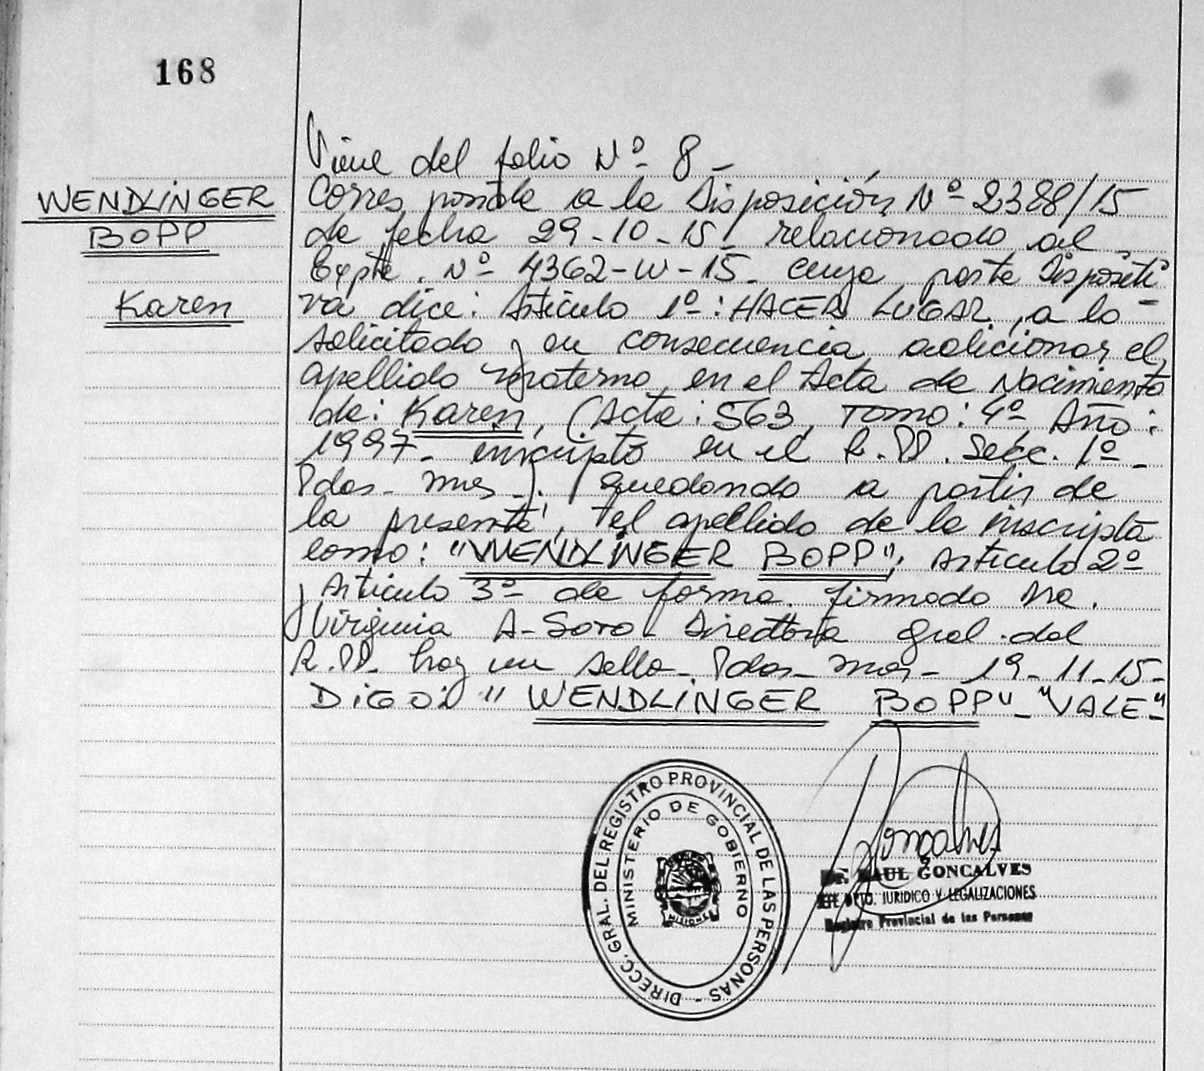 168
Viene del folio Nº 8 -
WENDLINGER
BOPP
Karen
Corresponde a la Disposición Nº 2388/15
de fecha 29-10-15, relacionado al
Expte. Nº 4362-W-15- cuya parte dispositi-
va dice: Artículo 1º: HACER LUGAR, a lo
solicitado y en consecuencia adicionar el
apellido materno, en el Acta de Nacimiento
de: Karen, (Acta: 563, Tomo: 4º Año:
1997- inscripto en el R.PP. Secc. 1º -
Pdas- Mnes-). quedando a partir de
la presente, el apellido de la inscripta
como: "WENDLINGER BOPP"; Artículo 2º
y Artículo 3º de forma. firmado Dra.
Virginia A-Soto Directora Gral. del
R.PP. hay un sello. Pdas- Mnes- 19-11-15-
DIGO: "WENDLINGER BOPP"- "VALE"-
DIRECC. GRAL. DEL REGISTRO PROVINCIAL DE LAS PERSONAS -
MINISTERIO DE GOBIERNO
MISIONES
Dr. RAUL GONCALVES
JEFE DPTO. JURIDICO Y LEGALIZACIONES
Registro Provincial de las Personas